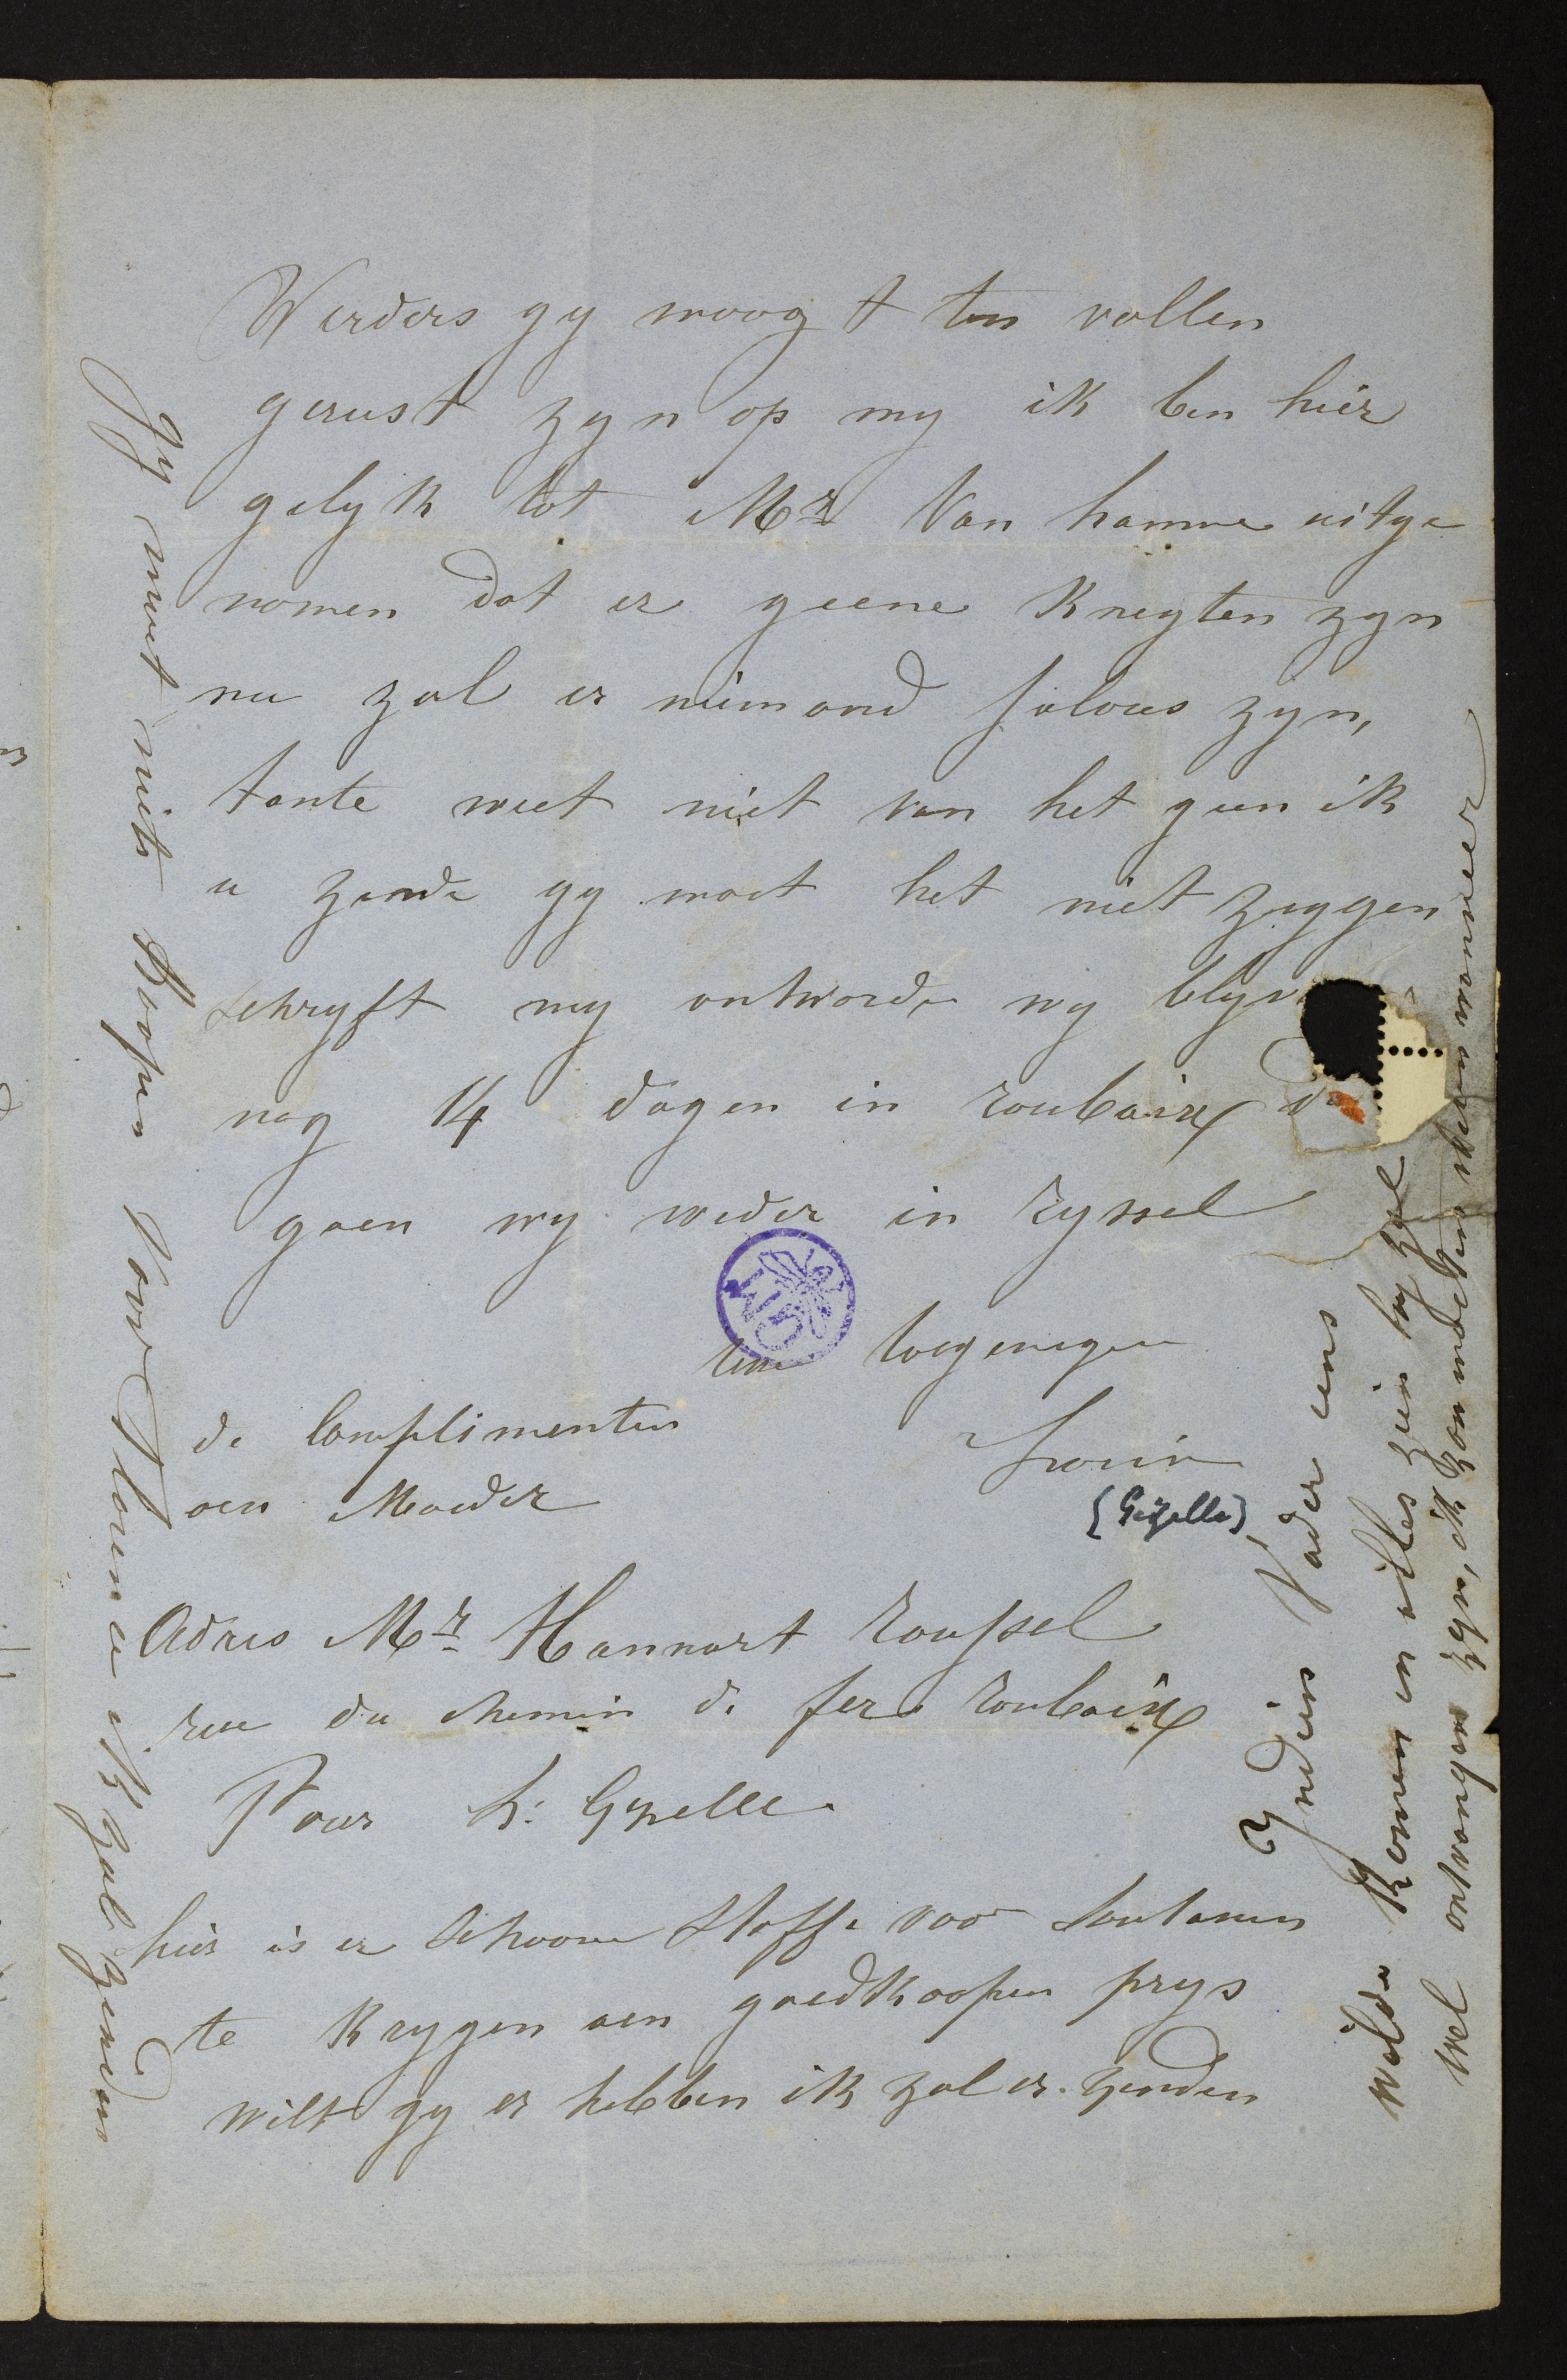 Werders gy moogt ten vollen
gerust zyn op my ik ben hier
gelyk tot Mr Van hamme uitge
nomen dat er geene Knegten zyn
nu zal er niemand jalous zyn,
tante weet niet van het geen ik
u zende gy moet het niet zeggen
schryft my antworde wy blyv
nog 14 dagen in roubaix d
gaen wy weder in ryssel
toegenegen
de Complimenten
aen Moeder
Louis
(Gezelle)
Adres Mr Hannart roussel
rue du chemin de fer roubaix
Pour L: Gezelle
hier is er schoone stoffe voor soutanen
te krygen aen goedkoopen prys
wilt gy er hebben ik zal er zenden
gy moet niets Koopen voor Florence ik zal zenden
Indien Vader eens
wilde komen en alles zien hy zal
wel ontvangen zyn, ik zou moeten weten wanneer